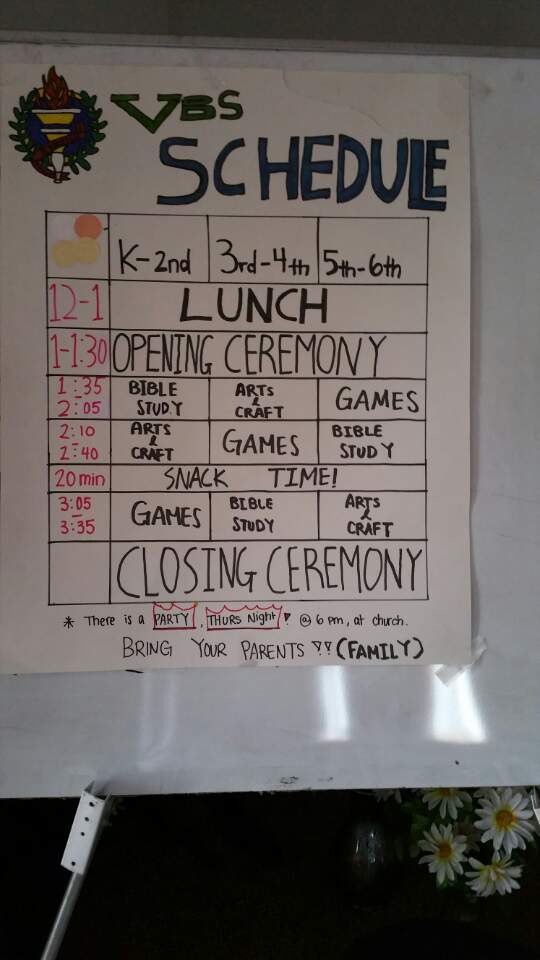 VBS
SCHEDULE
K-2nd 3rd-4th 5th-6th
12-1 LUNCH
1-1:30 OPENING CEREMONY
1:35 - 2:05 BIBLE STUDY ARTS & CRAFT GAMES
2:10 - 2:40 ARTS & CRAFT GAMES BIBLE STUDY
20 min SNACK TIME!
3:05 - 3:35 GAMES BIBLE STUDY ARTS & CRAFT
CLOSING CEREMONY
* There is a PARTY, THURS Night! @ 6 pm, at church.
BRING YOUR PARENTS !! (FAMILY)